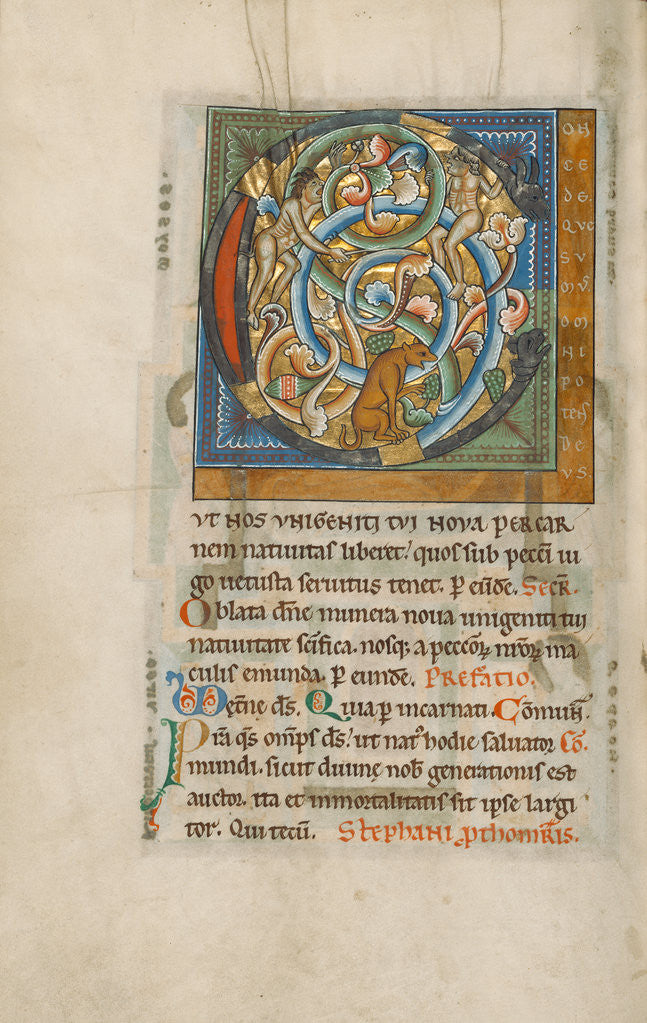 ON
CE
DE
QVE
SV
MV̄
OM
NI
PO
TENS
DE
VS
VT NOS VNIGENITI TVI NOVA PER CAR
nem nativitas liberet. quos sub pecci iu
go vetusta servitus tenet. P eūde. Secr̄.
Oblata dn̄e munera nova unigeniti tui
nativitate scīfica. nosq; a peccōꝝ nrōꝝ ma
culis emunda. P eunde. Prefatio.
VĘtnę ds̄. Quia p incarnati. Cōmuīi.
Pr̄a qs̄ omp̄s ds̄. ut nat' hodie salvator Cō.
mundi. sicut divinę nob̄ generationis est
auctor. ita et inmortalitatis sit ipse largi
tor. Qui tecū. Stephani ꝓthomr̄is.